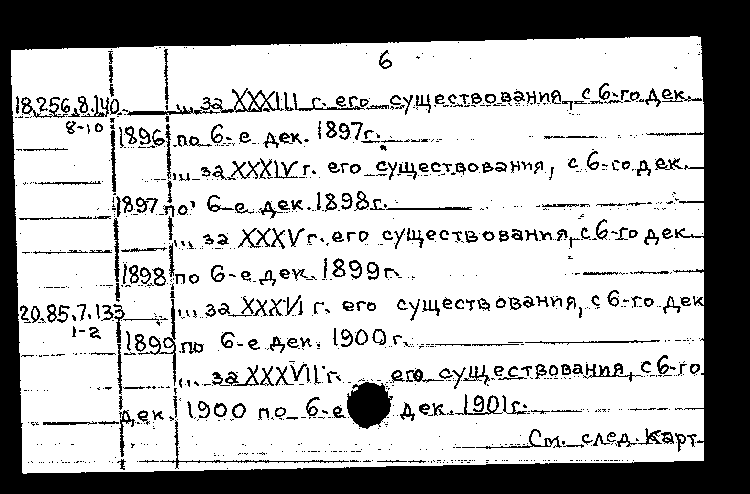 6
18.256.8.140 ... за XXXIII г. его существования, с 6-го дек.
8-10 1896 по 6-е дек. 1897г.
... за XXXIV г. его существования, с 6-го дек.
1897 по 6-е дек. 1898г.
... за XXXV г. его существования, с 6-го дек.
1898 по 6-е дек. 1899г.
20.85.7.133 ... за XXXVI г. его существования, с 6-го дек
1-2 1899 по 6-е дек. 1900г.
... за XXXVII г. его существования, с 6-го
дек. 1900 по 6-е дек. 1901г.
См. след. Карт.